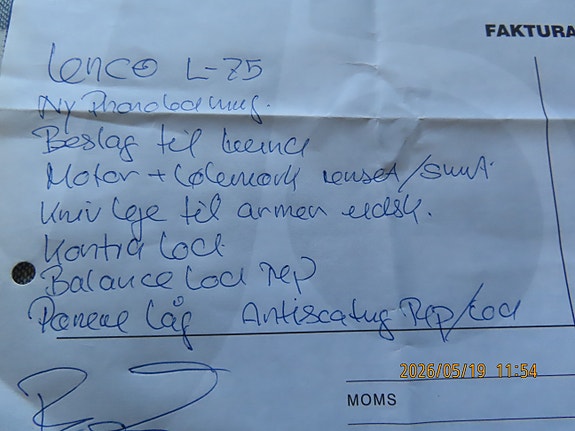 FAKTURA
Lenco L-75
Ny
Beslag til
Motor + renset/smurt
Kniv leje til armen udsk.
Kontra Lod
Balance Lod rep
låg Antiscating Rep/Lod
2026/05/19 11:54
MOMS